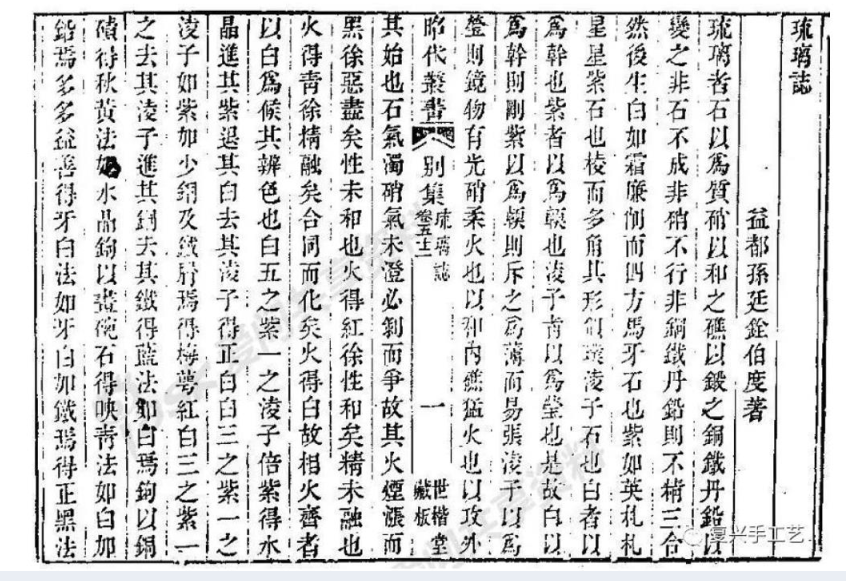 琉璃誌
益都孫廷銓伯度著
琉璃者石以爲質硝以和之礁以鍛之銅鐵丹鉛以
變之非石不成非硝不行非銅鐵丹鉛則不精三合
然後生白如霜廉削而四方馬牙石也紫如英札札
星星紫石也棱而多角其形似璞淩子石也白者以
爲幹也紫者以爲輭也淩子者以爲瑩也是故白以
爲幹則剛紫以爲輭則斥之爲薄而易張淩子以爲
瑩則鏡物有光硝柔火也以和內礁猛火也以攻外
昭代叢書 別集 琉璃誌 卷五十二 一 世楷堂 藏板
其始也石氣濁硝氣未澄必剝而爭故其火煙漲而
黑徐惡盡矣性未和也火得紅徐性和矣精未融也
火得靑徐精融矣合同而化矣火得白故相火齊者
以白爲候其辨色也白五之紫一之淩子倍紫得水
晶進其紫退其白去其淩子得正白白三之紫一之
淩子如紫加少銅及鐵屑焉得梅萼紅白三之紫一
之去其淩子進其銅去其鐵得藍法如白焉鉤以銅
磧得秋黃法如水晶鉤以畫碗石得映靑法如白加
鉛焉多多益善得牙白法如牙白加鐵焉得正黑法
复兴手工艺